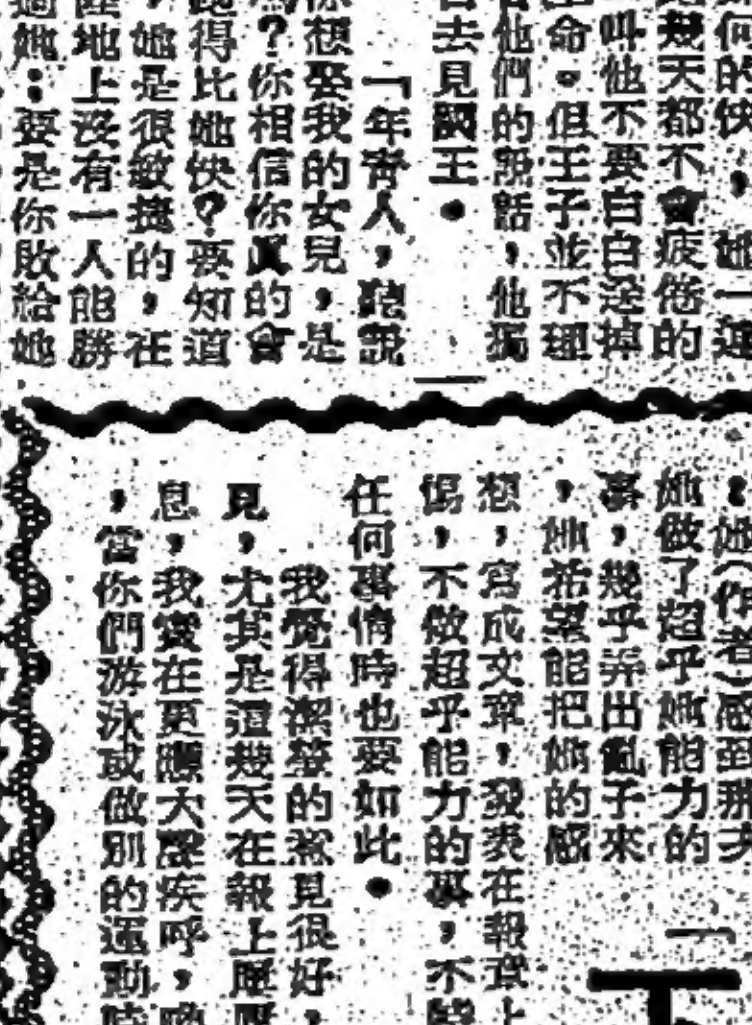 何的快，她一連
幾天都不會疲倦的
叫他不要白白送掉
命。但王子並不理
他們的說話，他獨
去見國王。
「年靑人，聽說
想娶我的女兒，是
？你相信你眞的會
得比她快？要知道
她是很敏捷的，在
地上沒有一人能勝
她：要是你敗給她
：她（作者）感到那次
她做了超乎她能力的
事，幾乎弄出亂子來
，她希望能把她的感
想，寫成文章，發表在報章上
，不做超乎能力的事，不
任何事情時也要如此。
我覺得潔瑩的意見很好，
見，尤其是這幾天在報上
息，我實在更應大聲疾呼，
，當你們游泳或做別的運動時